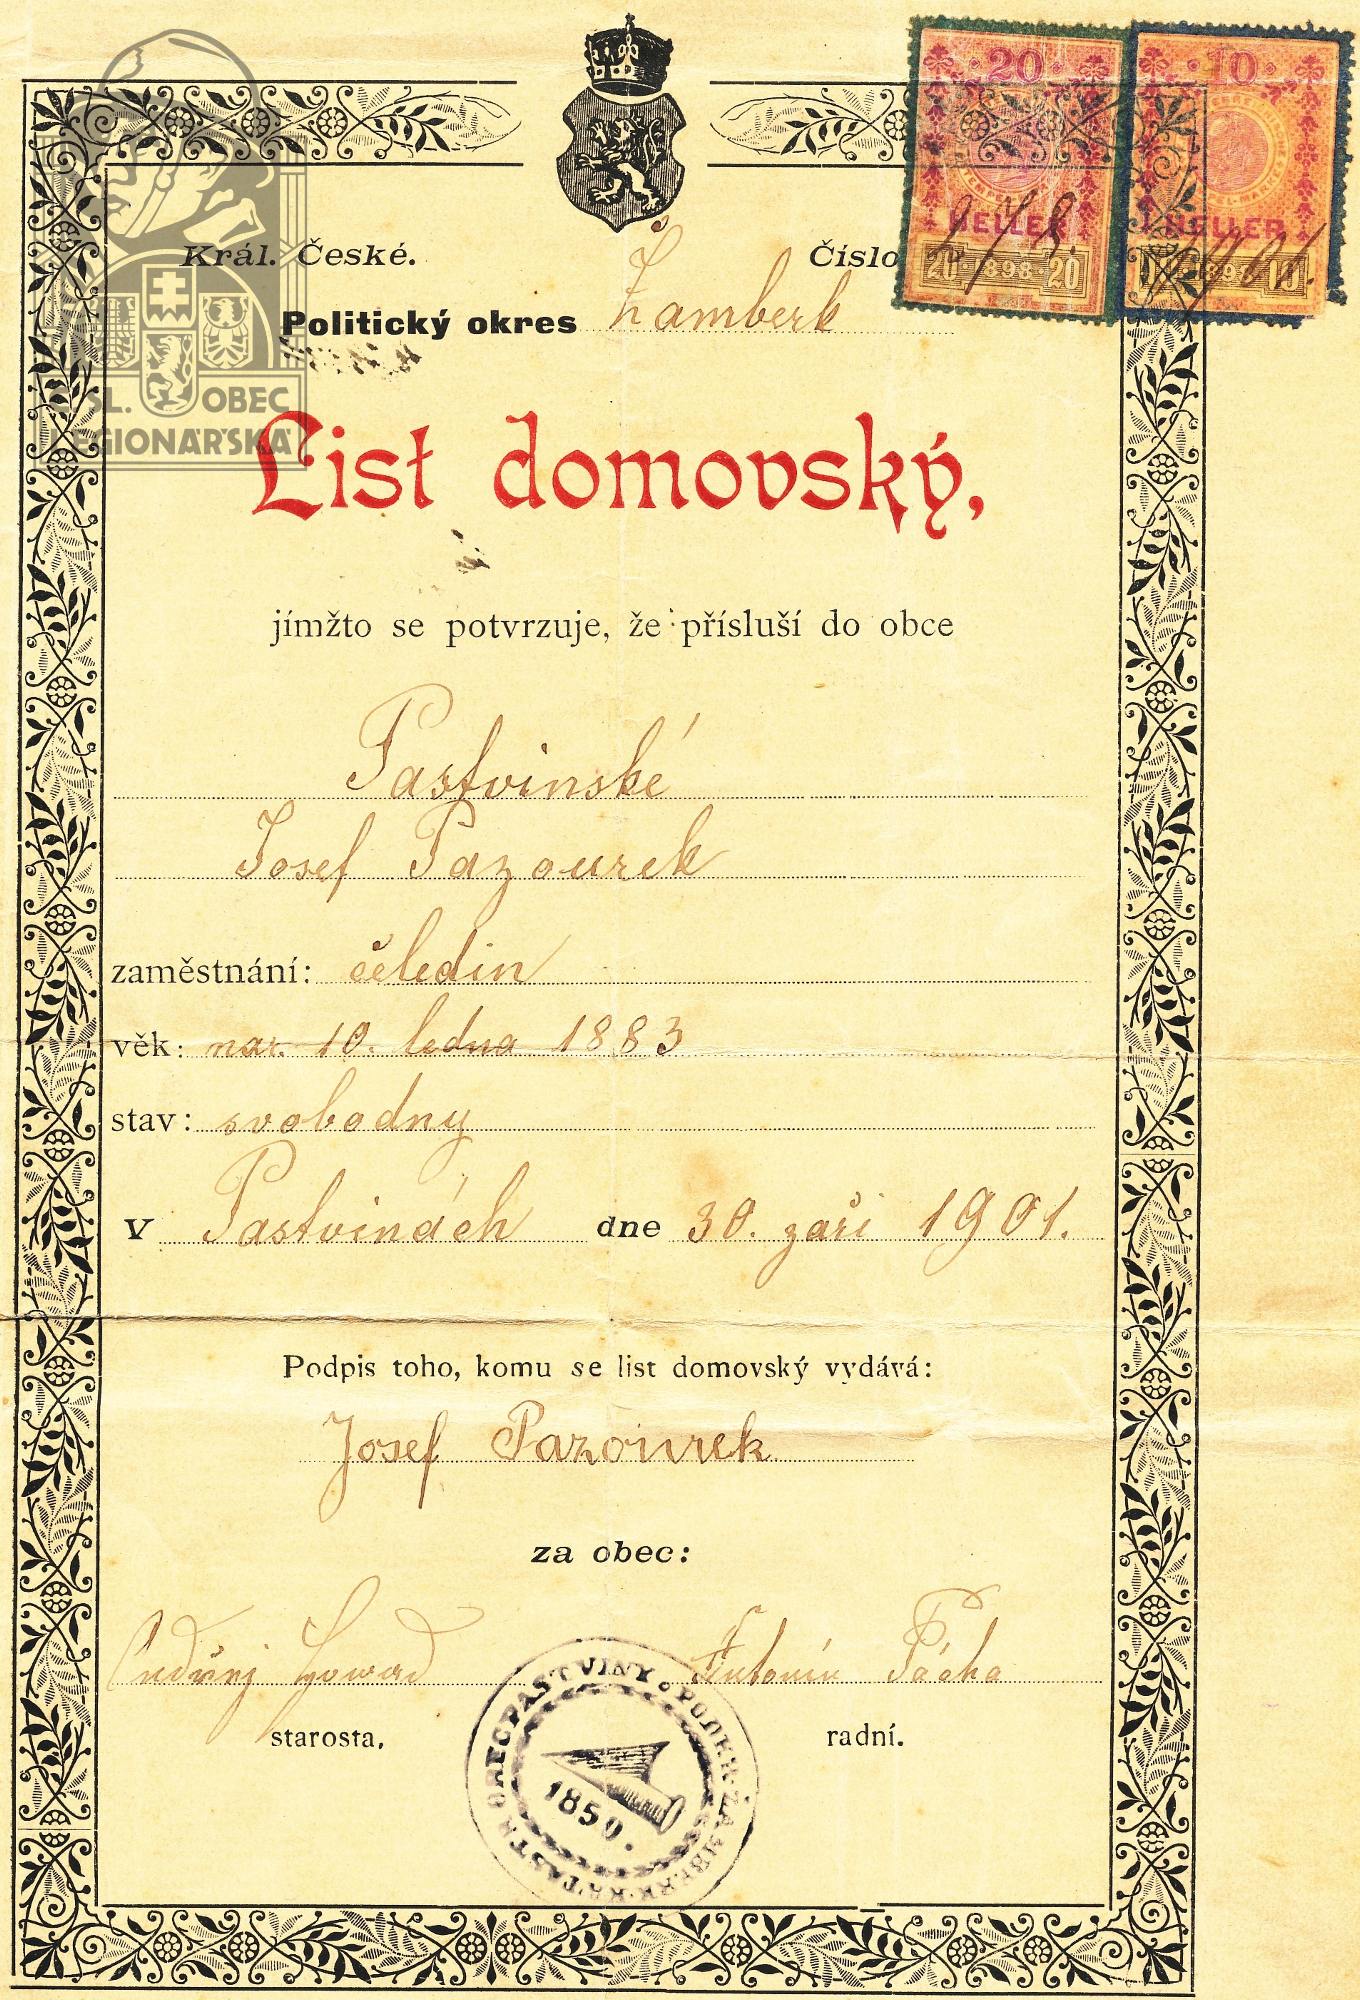 20
10
Král. České.
Číslo
HELLER
HELLER
278.
1901.
20 · 1898 · 20
1898 10
Politický okres Žamberk
ČSL. OBEC
LEGIONÁŘSKÁ
List domovský,
jímžto se potvrzuje, že přísluší do obce
Pastvinské
Josef Pazourek
zaměstnání: čeledín
věk: nar. 10. ledna 1883
stav: svobodny
V Pastvinách dne 30. září 1901.
Podpis toho, komu se list domovský vydává:
Josef Pazourek
za obec:
Antonín Pácha
starosta.
radní.
OBEC PASTVINY
1850.